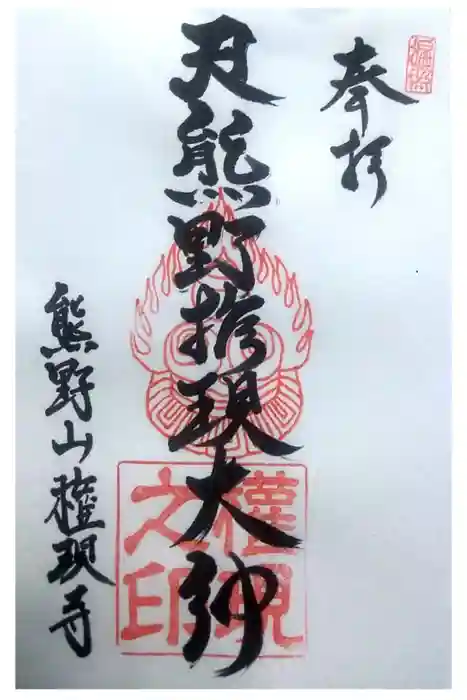 奉拝
熊野権現大神
権現之印
熊野山権現寺